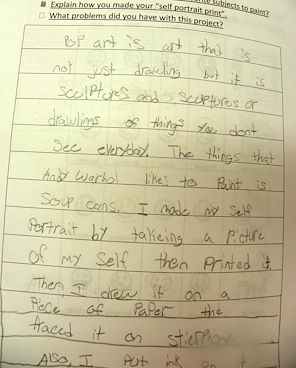 subjects to paint?
Explain how you made your "self portrait print".
What problems did you have with this project?
Pop art is art that is
not just drawling but it is
sculptures and sculptures or
drawlings of things you dont
see everyday. The things that
Andy Warhol likes to Paint is
Soup cans. I made my self
Portrait by takeing a Picture
of my self then Printed it.
Then I drew it on a
Piece of Paper the
traced it on
Also, I Put ink on it